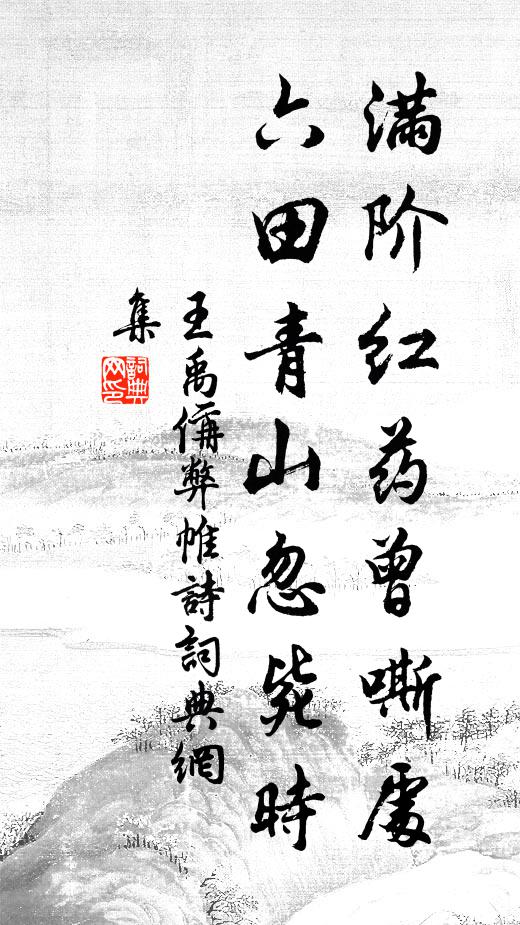 满阶红药曾嘶處
六田青山忽毙時
王禹偁弊帷詩詞典網
集
詞典网印